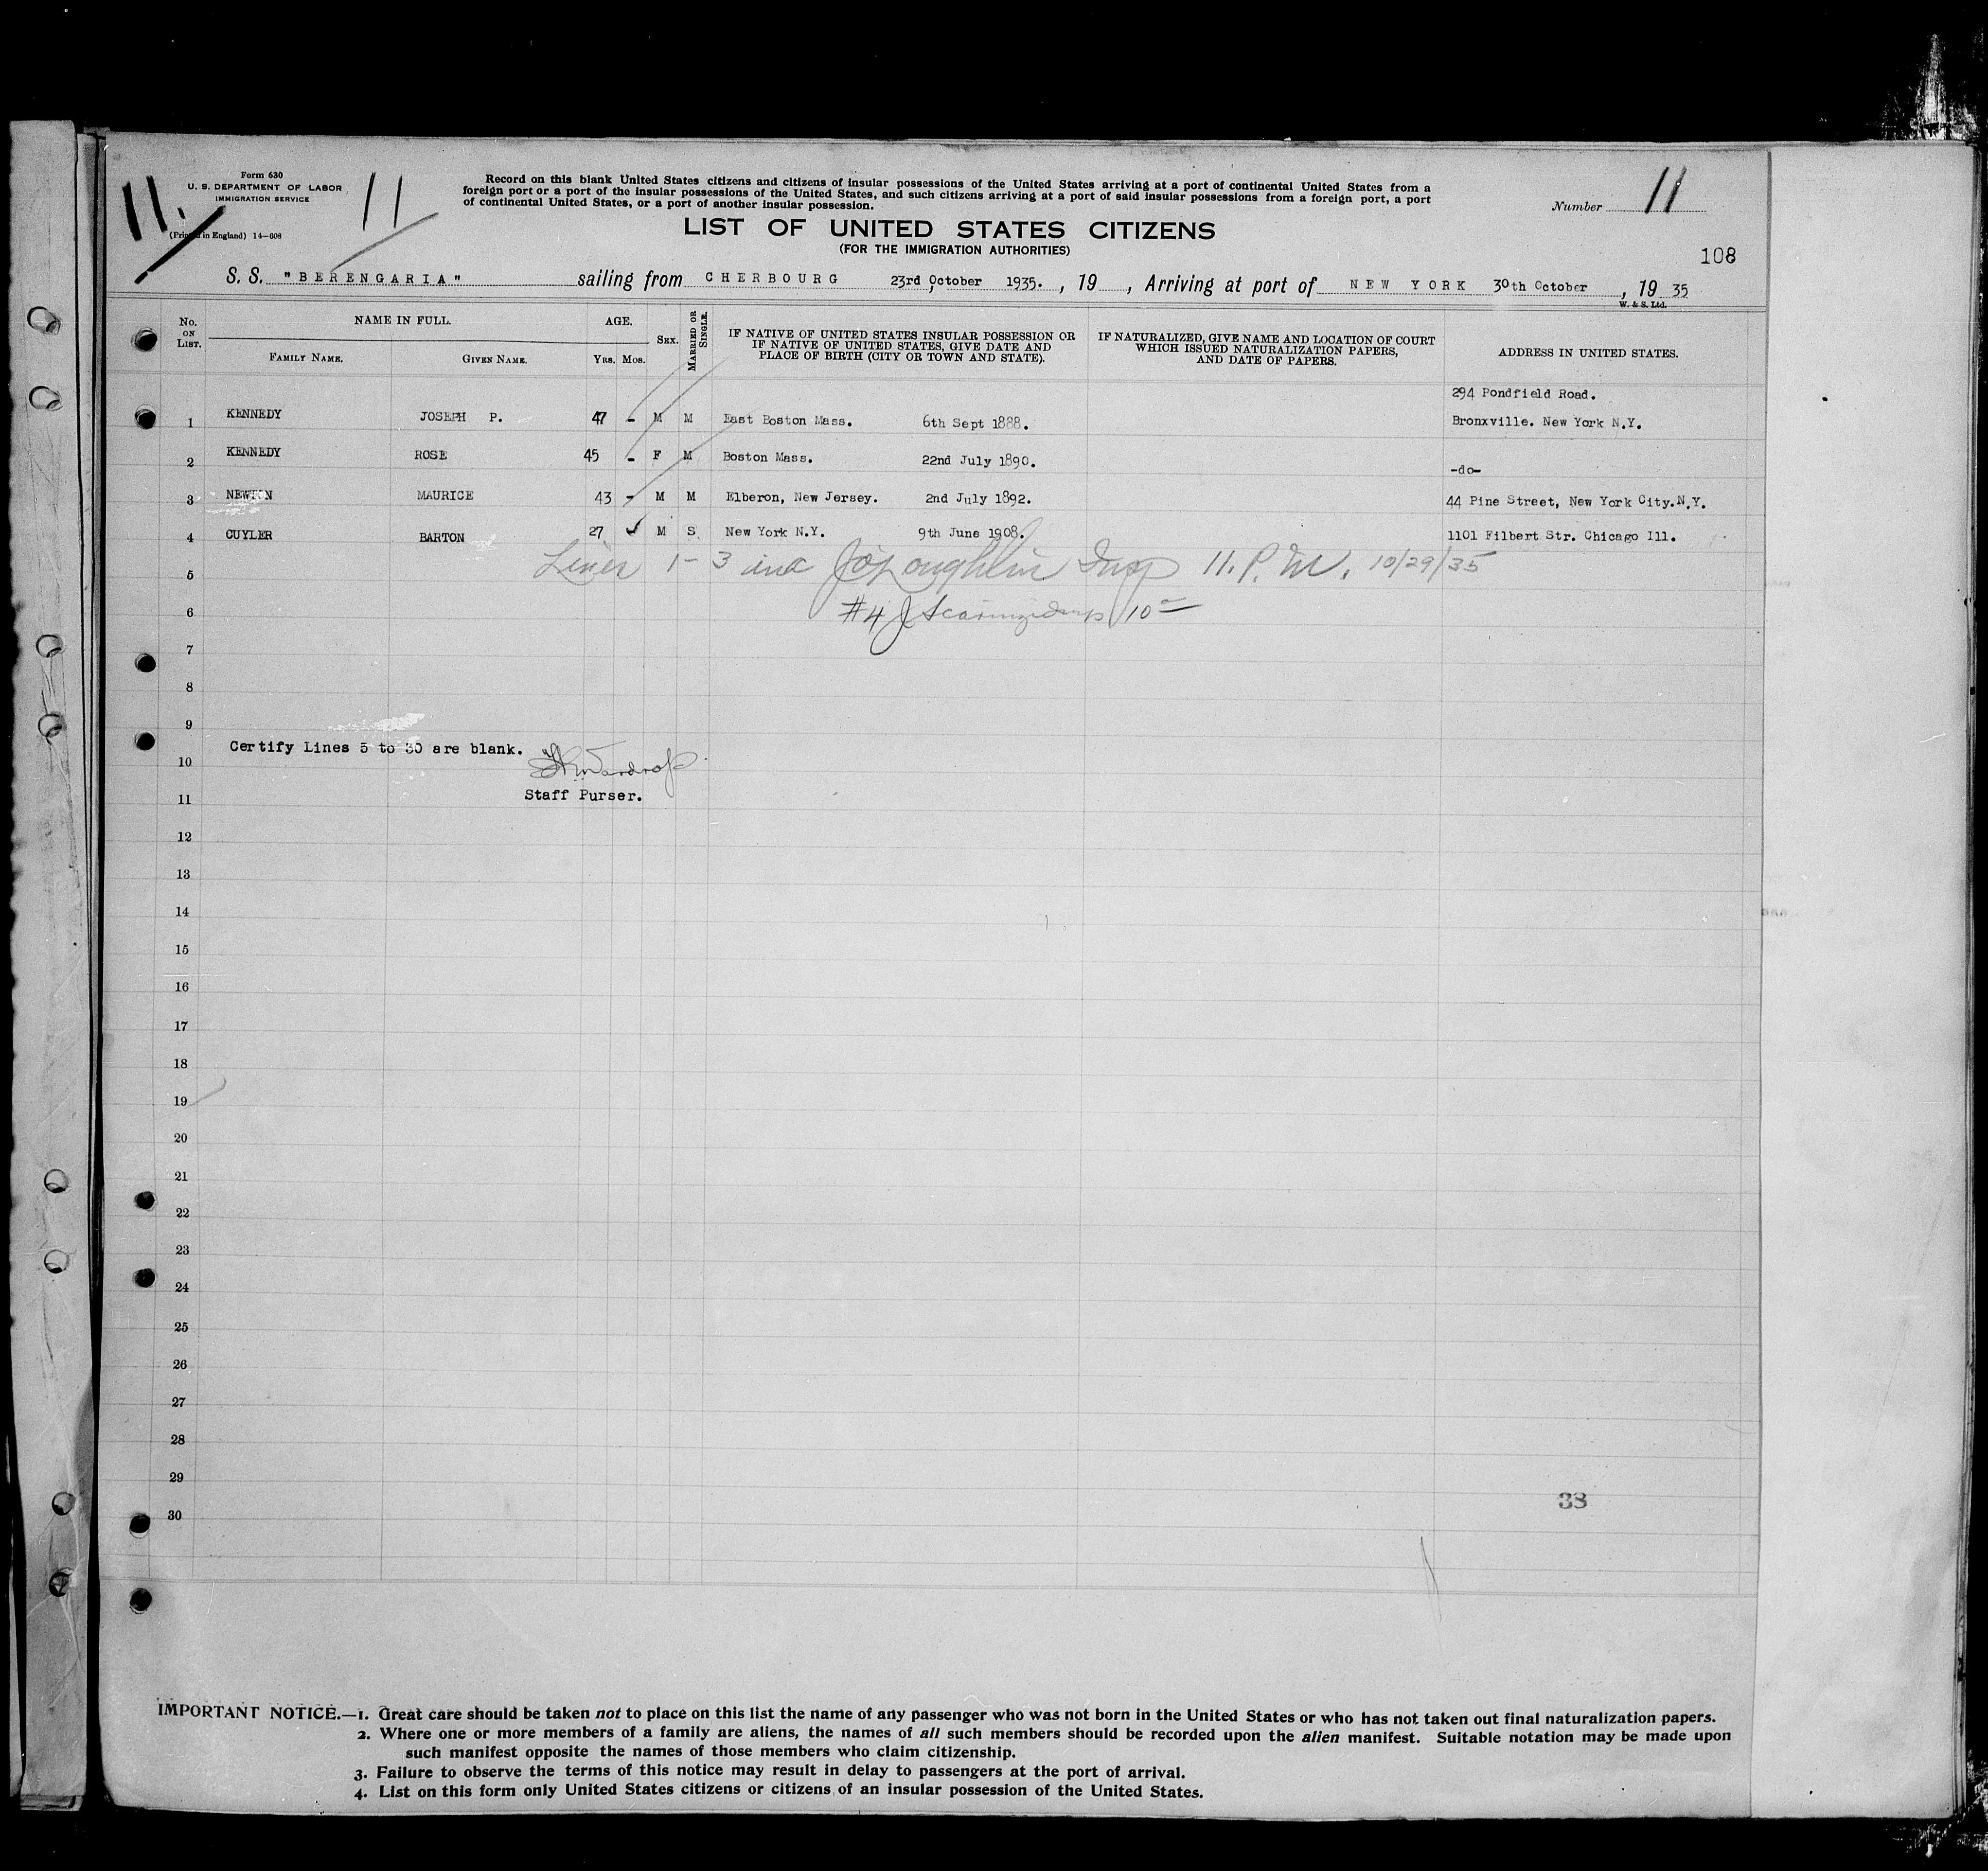 11.
Form 630
U. S. DEPARTMENT OF LABOR
IMMIGRATION SERVICE
(Printed in England) 14—608
11
Record on this blank United States citizens and citizens of insular possessions of the United States arriving at a port of continental United States from a
foreign port or a port of the insular possessions of the United States, and such citizens arriving at a port of said insular possessions from a foreign port, a port
of continental United States, or a port of another insular possession.
Number 11
LIST OF UNITED STATES CITIZENS
(FOR THE IMMIGRATION AUTHORITIES)
108
S. S. "BERENGARIA" sailing from CHERBOURG 23rd October 1935. , 19 , Arriving at port of NEW YORK 30th October , 19 35
W. & S. Ltd.
No. ON LIST. NAME IN FULL. AGE. SEX. MARRIED OR SINGLE. IF NATIVE OF UNITED STATES INSULAR POSSESSION OR IF NATIVE OF UNITED STATES, GIVE DATE AND PLACE OF BIRTH (CITY OR TOWN AND STATE). IF NATURALIZED, GIVE NAME AND LOCATION OF COURT WHICH ISSUED NATURALIZATION PAPERS, AND DATE OF PAPERS. ADDRESS IN UNITED STATES.
FAMILY NAME. GIVEN NAME. YRS. MOS.
294 Pondfield Road.
1 KENNEDY JOSEPH P. 47 - M M East Boston Mass. 6th Sept 1888. Bronxville. New York N.Y.
2 KENNEDY ROSE 45 - F M Boston Mass. 22nd July 1890. -do-
3 NEWTON MAURICE 43 - M M Elberon, New Jersey. 2nd July 1892. 44 Pine Street, New York City.N.Y.
4 CUYLER BARTON 27 M S New York N.Y. 9th June 1908. 1101 Filbert Str. Chicago Ill.
5 Lines 1-3 inc J O'Loughlin Insp 11. P. M. 10/29/35
6 #4 J 10
7
8
9
Certify Lines 5 to 30 are blank.
10
Staff Purser.
11
12
13
14
15
16
17
18
19
20
21
22
23
24
25
26
27
28
29
38
30
IMPORTANT NOTICE.—1. Great care should be taken not to place on this list the name of any passenger who was not born in the United States or who has not taken out final naturalization papers.
2. Where one or more members of a family are aliens, the names of all such members should be recorded upon the alien manifest. Suitable notation may be made upon
such manifest opposite the names of those members who claim citizenship.
3. Failure to observe the terms of this notice may result in delay to passengers at the port of arrival.
4. List on this form only United States citizens or citizens of an insular possession of the United States.